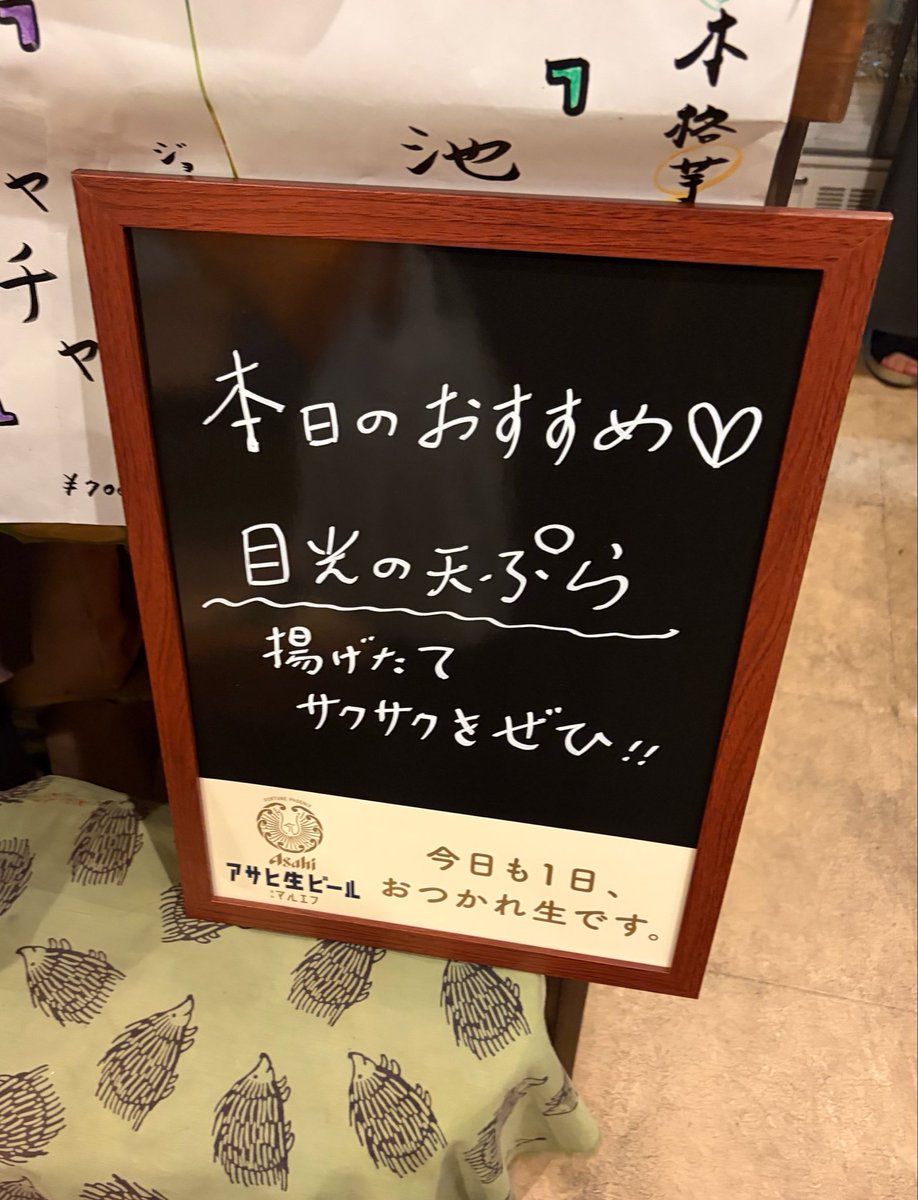 本格芋
池
ジョ
ャチャ
¥700
本日のおすすめ♡
目光の天ぷら
揚げたて
サクサクをぜひ!!
FORTUNE PHOENIX
Asahi
アサヒ生ビール
マルエフ
今日も1日、
おつかれ生です。